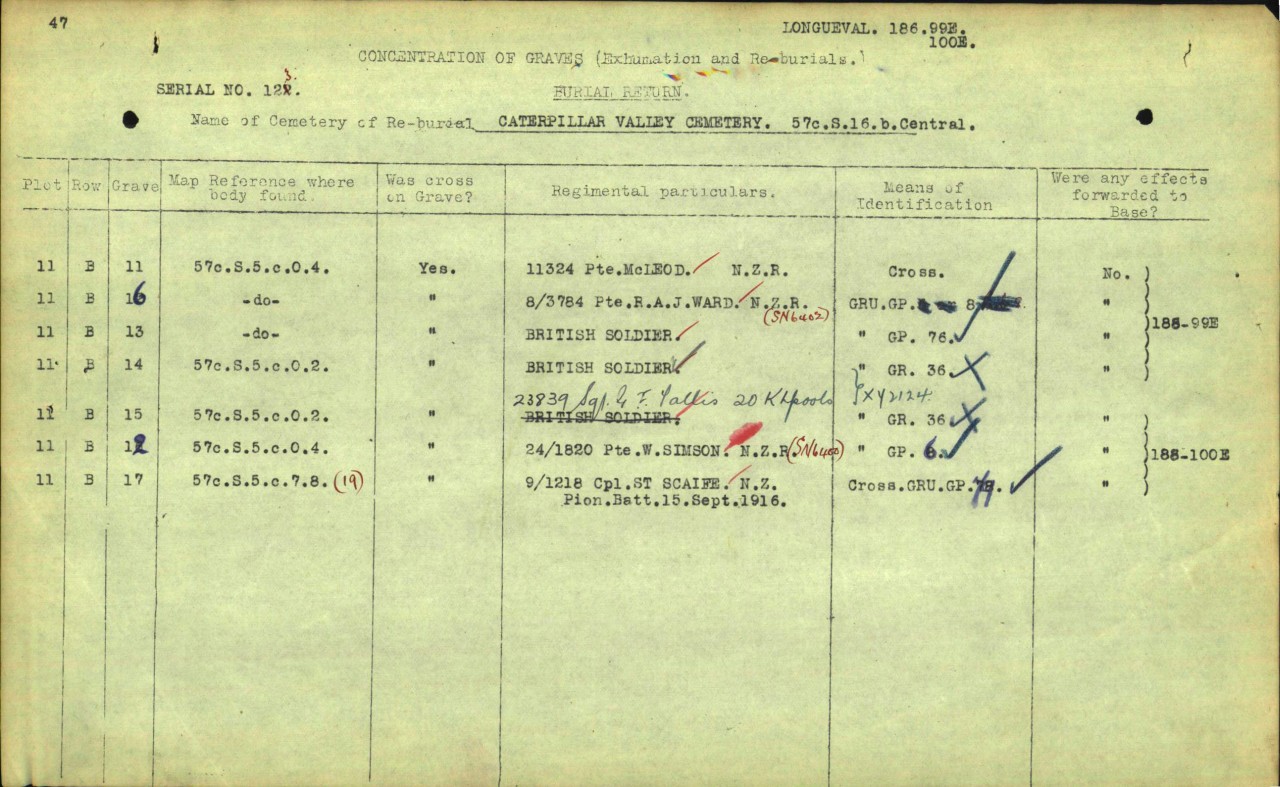 47
LONGUEVAL. 186.99E.
100E.
CONCENTRATION OF GRAVES (Exhumation and Re-burials.)
SERIAL NO. 123.
BURIAL RETURN.
Name of Cemetery of Re-burial CATERPILLAR VALLEY CEMETERY. 57c.S.16.b.Central.
Plot Row Grave Map Reference where body found. Was cross on Grave? Regimental particulars. Means of Identification Were any effects forwarded to Base?
11 B 11 57c.S.5.c.0.4. Yes. 11324 Pte.McLEOD. N.Z.R. Cross. No.
11 B 16 -do- " 8/3784 Pte.R.A.J.WARD. N.Z.R. GRU.GP. 8 "
(SN6402)
188-99E
11 B 13 -do- " BRITISH SOLDIER. " GP. 76. "
11 B 14 57c.S.5.c.0.2. " BRITISH SOLDIER " GR. 36. "
23839 Sgt. G F. Tallis 20 K Lpools XY2124
11 B 15 57c.S.5.c.0.2. " BRITISH SOLDIER. " GR. 36. "
11 B 12 57c.S.5.c.0.4. " 24/1820 Pte.W.SIMSON. N.Z.R. (SN6400) " GP. 6. " 188-100E
11 B 17 57c.S.5.c.7.8. (19) " 9/1218 Cpl.ST SCAIFE. N.Z. Cross.GRU.GP. "
Pion.Batt.15.Sept.1916.